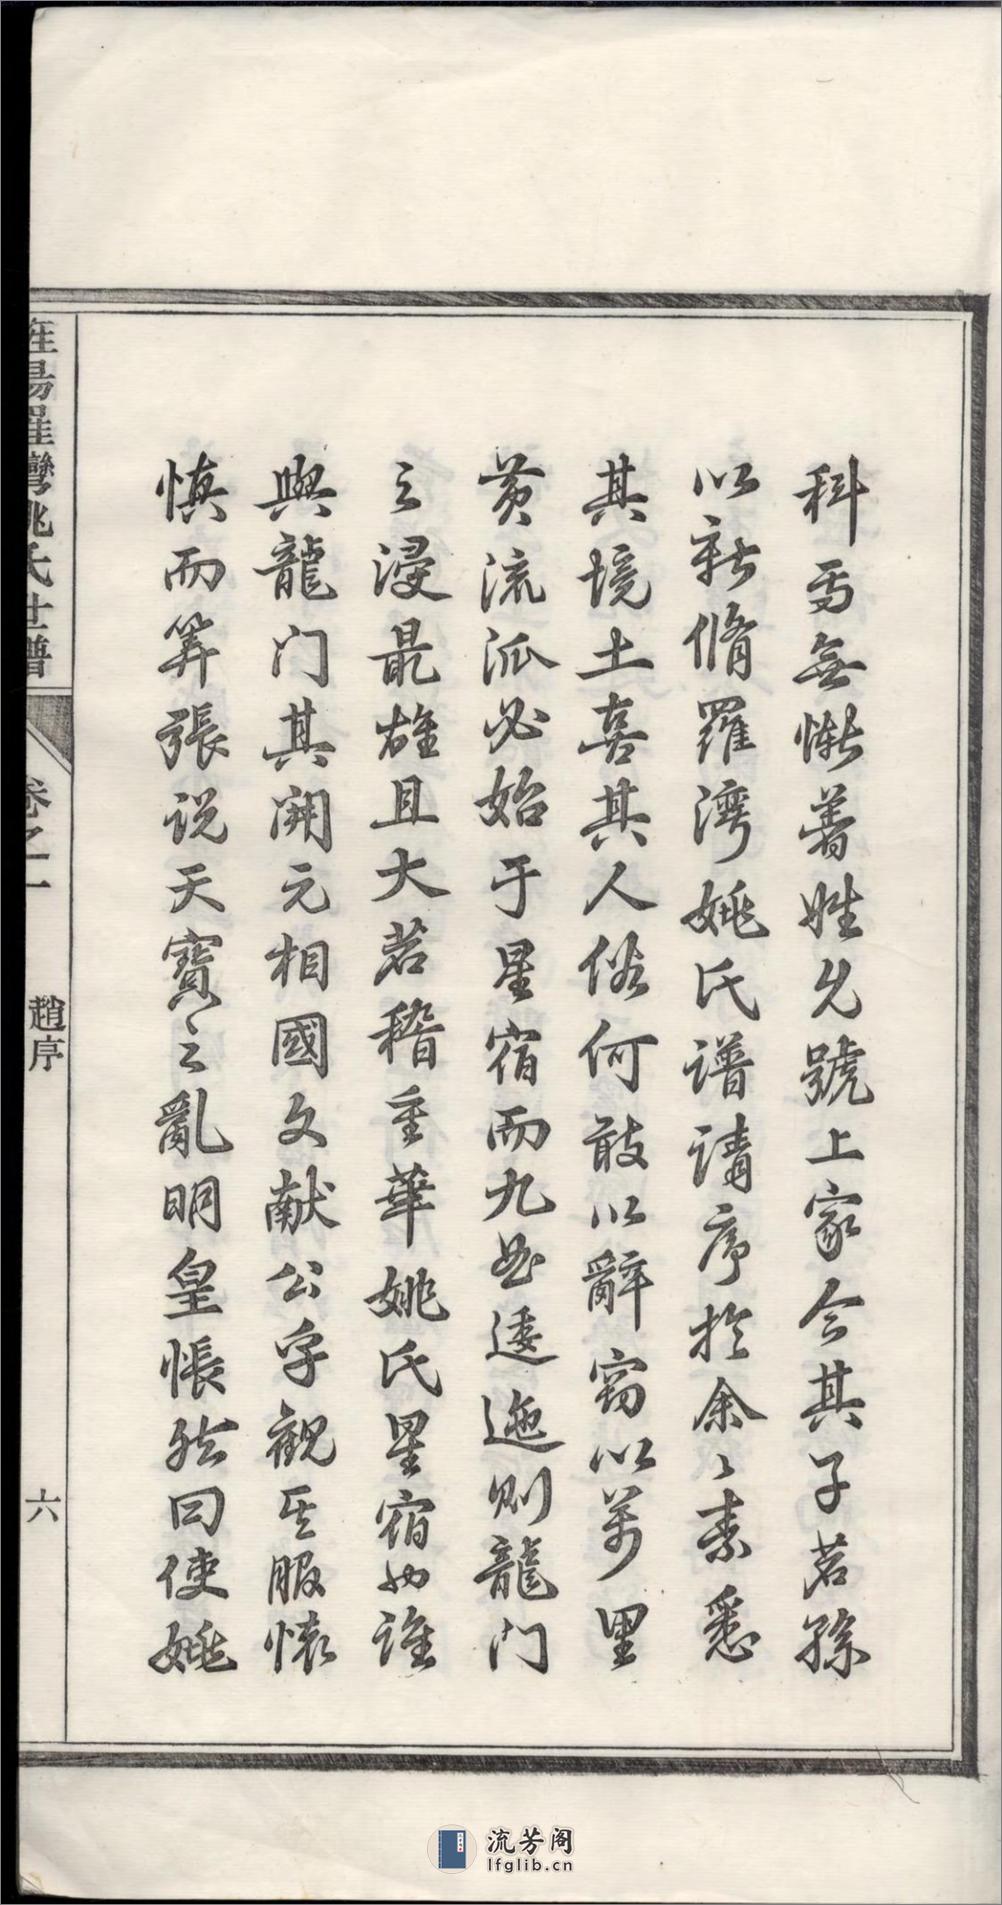 科焉無慚著姓允號上家今其子若孫
以新脩羅灣姚氏譜請序於余〻素悉
其境土喜其人俗何敢以辭竊以萬里
黃流派必始于星宿而九曲逶迤則龍門
之浸最雄且大若稽重華姚氏星宿也雖
與龍门其開元相國文献公乎觀其服懷
慎而筭張説天寶之亂明皇悵然曰使姚
羅灣姚氏世譜
卷之一
趙序
六
流芳阁
lfglib.cn